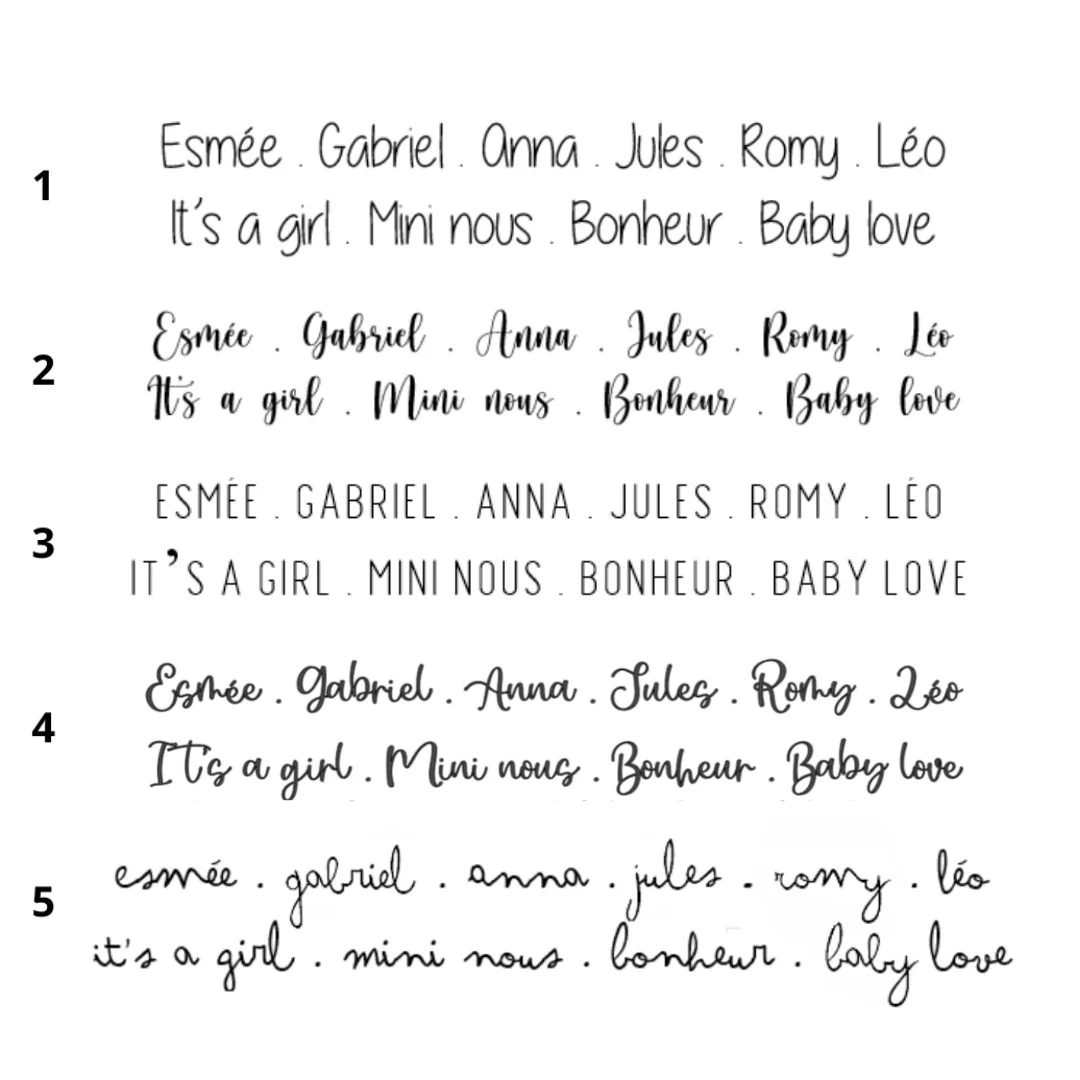 1
Esmée . Gabriel . Anna . Jules . Romy . Léo
It's a girl . Mini nous . Bonheur . Baby love
2
Esmée . Gabriel . Anna . Jules . Romy . Léo
It's a girl . Mini nous . Bonheur . Baby love
3
ESMÉE . GABRIEL . ANNA . JULES . ROMY . LÉO
IT’S A GIRL . MINI NOUS . BONHEUR . BABY LOVE
4
Esmée . Gabriel . Anna . Jules . Romy . Léo
It's a girl . Mini nous . Bonheur . Baby love
5
esmée . gabriel . anna . jules . romy . léo
it's a girl . mini nous . bonheur . baby love